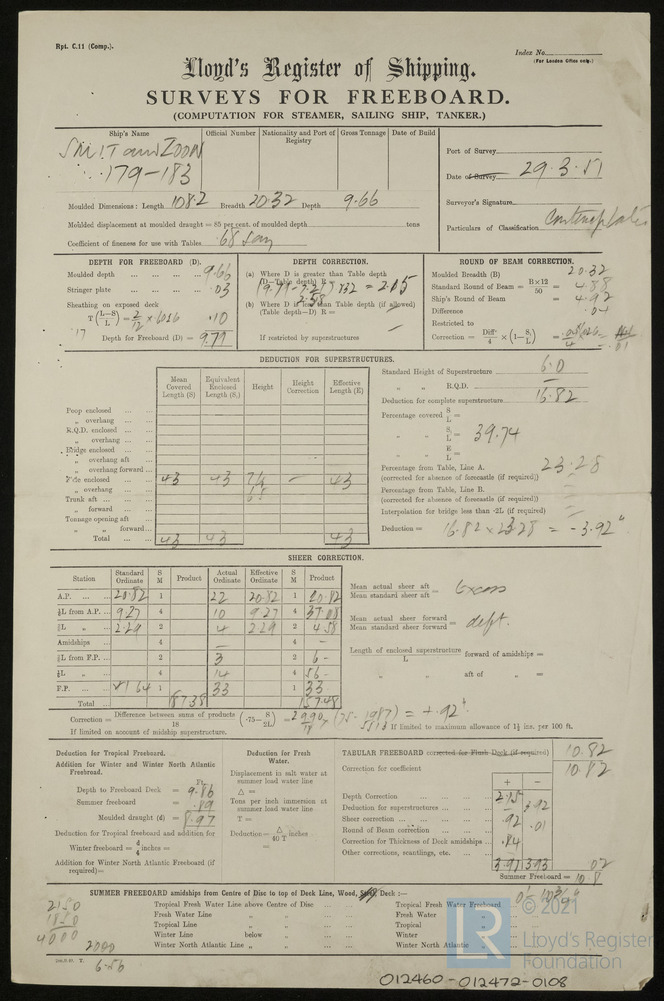 Rpt. C.11 (Comp.).
Index No.
(For London Office only.)
Lloyd's Register of Shipping.
SURVEYS FOR FREEBOARD.
(COMPUTATION FOR STEAMER, SAILING SHIP, TANKER.)
Ship's Name
Official Number
Nationality and Port of Registry
Gross Tonnage
Date of Build
SMIT and ZOON
179-183
Port of Survey
Date of Survey 29.3.51
Surveyor's Signature
Particulars of Classification Contemplated
Moulded Dimensions: Length 108.2 Breadth 20.32 Depth 9.66
Moulded displacement at moulded draught = 85 per cent. of moulded depth tons
Coefficient of fineness for use with Tables .68 say
DEPTH FOR FREEBOARD (D).
Moulded depth 9.66
Stringer plate .03
Sheathing on exposed deck
T (L-S/L) = .10
Depth for Freeboard (D) = 9.79
DEPTH CORRECTION.
(a) Where D is greater than Table depth
(D-Table depth) R =
(9.79-7.21) .732 = 2.05
2.58
(b) Where D is less than Table depth (if allowed)
(Table depth-D) R =
If restricted by superstructures
ROUND OF BEAM CORRECTION.
Moulded Breadth (B) 20.32
Standard Round of Beam = B×12/50 = 4.88
Ship's Round of Beam = 4.92
Difference .04
Restricted to
Correction = Diff/4 × (1-S₁/L) = .01
DEDUCTION FOR SUPERSTRUCTURES.
Mean Covered Length (S)
Equivalent Enclosed Length (S₁)
Height
Height Correction
Effective Length (E)
Poop enclosed
„ overhang
R.Q.D. enclosed
„ overhang
Bridge enclosed
„ overhang aft
„ overhang forward
F'cle enclosed 43 43 7/6 - 43
„ overhang
Trunk aft
„ forward
Tonnage opening aft
„ „ forward
Total 43 43 43
Standard Height of Superstructure 6.0
„ „ R.Q.D. -
Deduction for complete superstructure 16.82
Percentage covered S/L =
„ „ S₁/L = 39.74
„ „ E/L =
Percentage from Table, Line A. 23.28
(corrected for absence of forecastle (if required))
Percentage from Table, Line B.
(corrected for absence of forecastle (if required))
Interpolation for bridge less than .2L (if required)
Deduction = 16.82 × 23.28 = -3.92"
SHEER CORRECTION.
Station
Standard Ordinate
S M
Product
Actual Ordinate
Effective Ordinate
S M
Product
A.P. 20.82 1 22 20.82 1 20.82
⅙L from A.P. 9.27 4 10 9.27 4 37.08
⅓L „ 2.29 2 4 2.29 2 4.58
Amidships 4 - 4 -
⅓L from F.P. 2 3 2 6-
⅙L „ 4 14 4 56-
F.P. 41.64 1 33 1 33
Total 187.38 157.48
Mean actual sheer aft / Mean standard sheer aft = Excess
Mean actual sheer forward / Mean standard sheer forward = deft.
Length of enclosed superstructure / L forward of amidships =
„ „ aft of „ =
Correction = Difference between sums of products / 18 (.75 - S/2L) = 29.90/18 (.75-.1987) = +.92"
If limited on account of midship superstructure.
If limited to maximum allowance of 1½ ins. per 100 ft.
Deduction for Tropical Freeboard.
Addition for Winter and Winter North Atlantic Freeboard.
Ft.
Depth to Freeboard Deck = 9.86
Summer freeboard = .89
Moulded draught (d) = 8.97
Deduction for Tropical freeboard and addition for
Winter freeboard = d/4 inches =
Addition for Winter North Atlantic Freeboard (if required)=
Deduction for Fresh Water.
Displacement in salt water at summer load water line
Δ =
Tons per inch immersion at summer load water line
T =
Deduction = Δ/40 T inches
TABULAR FREEBOARD corrected for Flush Deck (if required) 10.82
Correction for coefficient 10.82
+ -
Depth Correction 2.15
Deduction for superstructures 3.92
Sheer correction .92
Round of Beam correction .01
Correction for Thickness of Deck amidships .84
Other corrections, scantlings, etc.
3.91 3.93 .02
Summer Freeboard = 10.8
SUMMER FREEBOARD amidships from Centre of Disc to top of Deck Line, Wood, Steel, Deck :—
Tropical Fresh Water Line above Centre of Disc
Fresh Water Line „ „
Tropical Line „ „
Winter Line below „
Winter North Atlantic Line „ „
Tropical Fresh Water Freeboard
Fresh Water „
Tropical „
Winter „
Winter North Atlantic „
2150
1850
4000
2000
6.56
012460-012472-0108
© 2021
LR
Lloyd's Register
Foundation